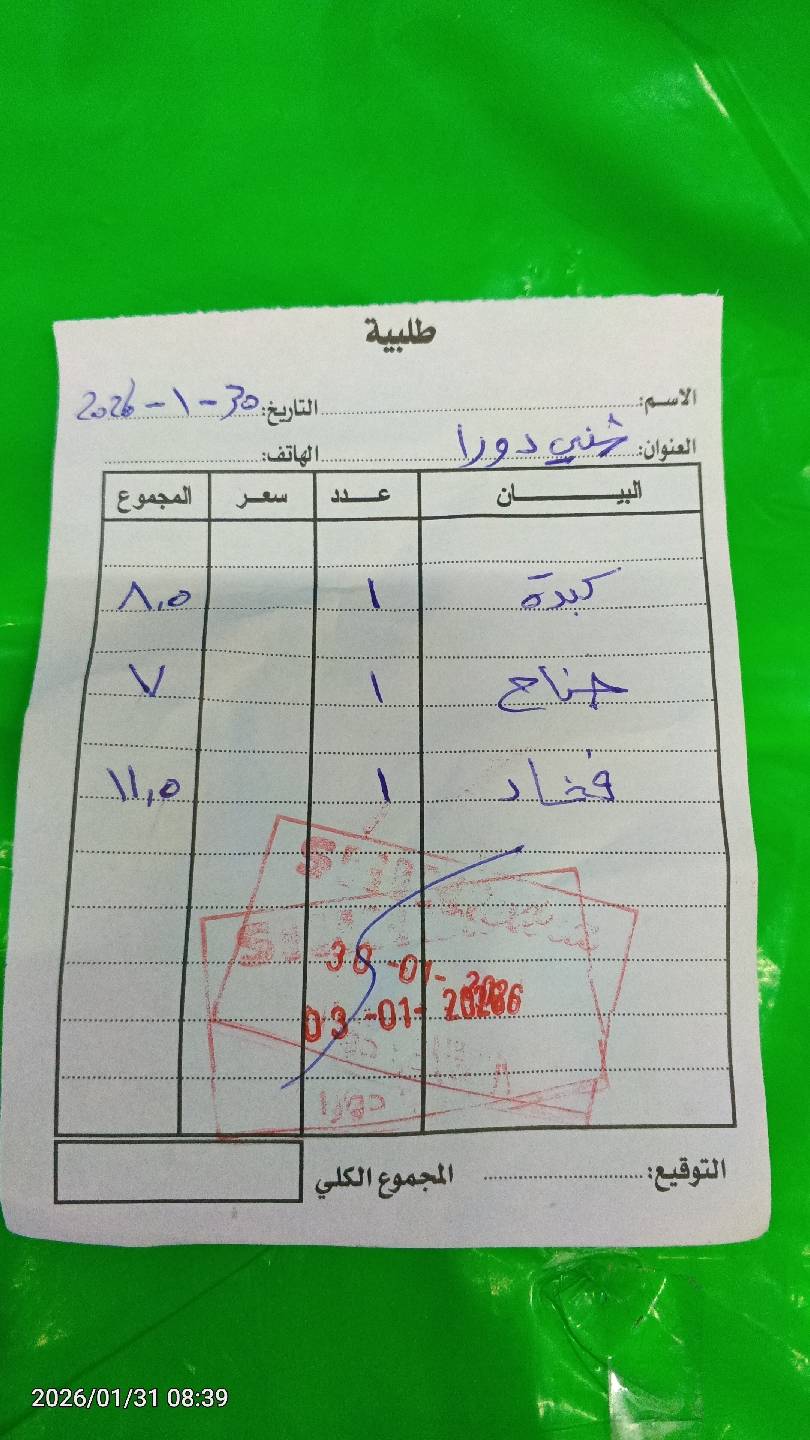 طلبية
الاسم: التاريخ: 30-١-2026
العنوان: دورا الهاتف:
البيان عدد سعر المجموع
كبدة ١ ٨,٥
جناح ١ ٧
فخاد ١ ١١,٥
30 -01- 2026
03 -01- 2026
دورا
التوقيع: المجموع الكلي
2026/01/31 08:39